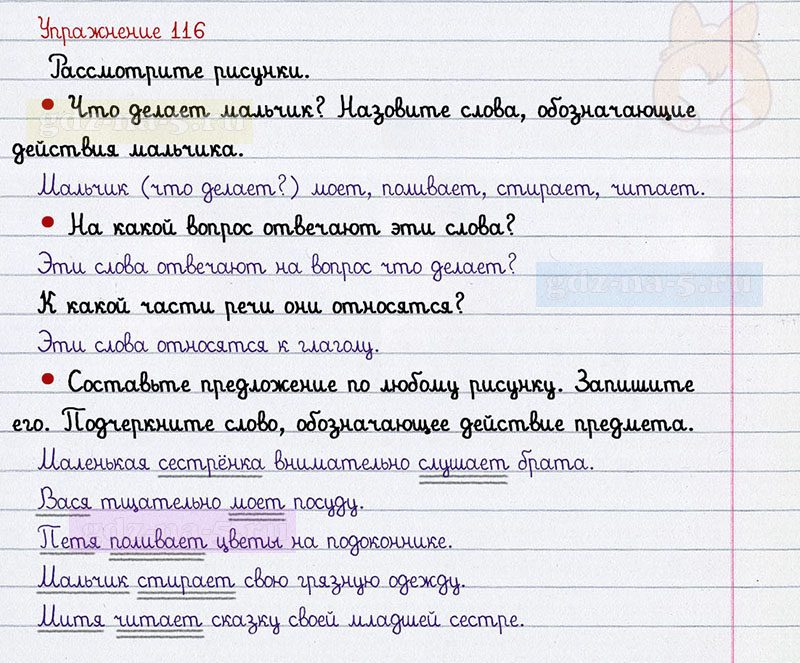 Упражнение 116
Рассмотрите рисунки.
• Что делает мальчик? Назовите слова, обозначающие
действия мальчика.
Мальчик (что делает?) моет, поливает, стирает, читает.
• На какой вопрос отвечают эти слова?
Эти слова отвечают на вопрос что делает?
gdz-na-5.ru
К какой части речи они относятся?
Эти слова относятся к глаголу.
• Составьте предложение по любому рисунку. Запишите
его. Подчеркните слово, обозначающее действие предмета.
Маленькая сестрёнка внимательно слушает брата.
Вася тщательно моет посуду.
Петя поливает цветы на подоконнике.
Мальчик стирает свою грязную одежду.
Митя читает сказку своей младшей сестре.